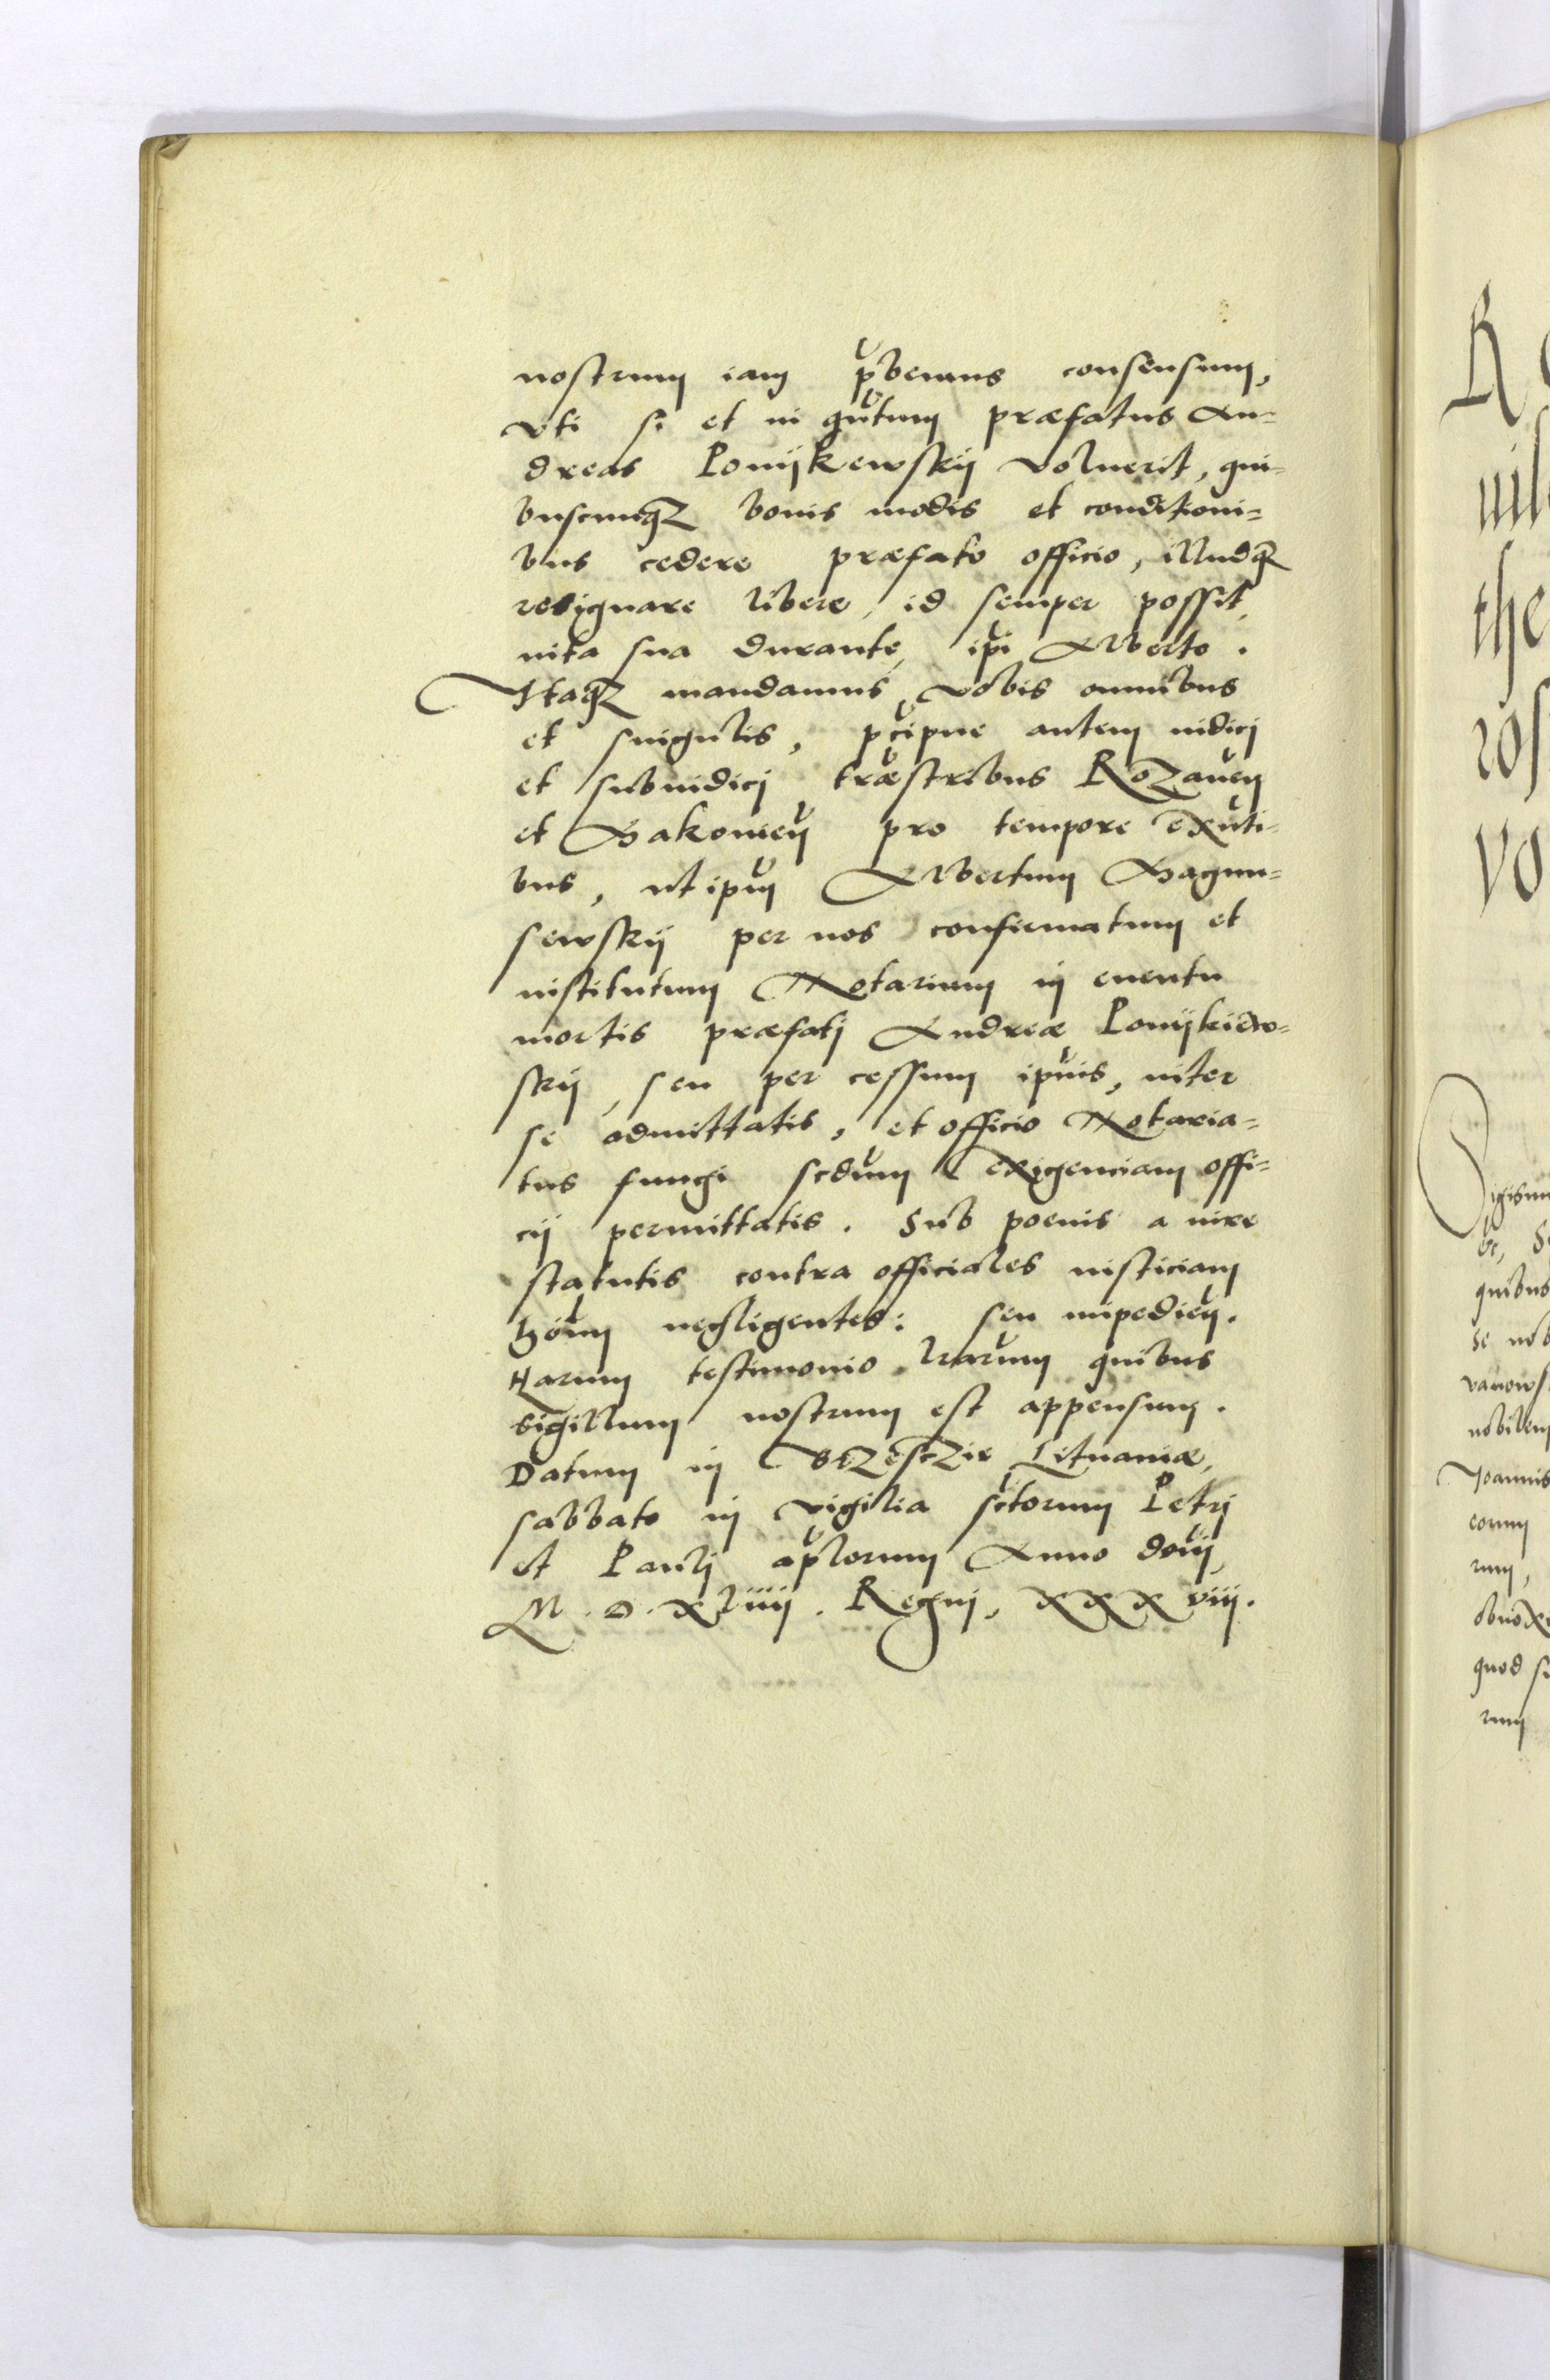 nostrum iam p̆bemus consensum,
Vti si et in qŭtum præfatus An-
dreas Lonijkewskij voluerit, qui-
buscumqꝫ bonis modis et conditioni-
bus cedere præfato officio, illudqꝫ
resignare libere, id semper possit,
uita sua durante, ip̆i Alberto.
Itaqꝫ mandamus, vobis omnibus
et singulis, p̆cipue autem iudicj
et subiudicj tr̆æstribus Rozaneñ
et Makovieñ pro tempore exñti-
bus, ut ip̆um Albertum Magnu-
sewskij per nos confirmatum et
institutum Notarium in euentu
mortis præfatj Andreæ Lonijkiew-
skij, seu per cessum ip̆ius, inter
se admittatis, et officio Notaria-
tus fungi scdŭm exigenciam offi-
cij permittatis. Sub poenis a iure
statutis contra officiales iusticiam
hŏium negligentes: seu impedieñ.
Harum testimonio lr̆arum quibus
sigillum nostrum est appensum.
Datum in Brzesczie Lituaniæ,
sabbato in vigilia sc̆torum Petrj
et Paulj ap̆lorum Anno dom̆j,
M.D.xliiij. Regnj, xxxviij.
R
nil
the
ros
vo
Sigism
quibus
se nob
vanows
nobilem
Joannis
eorum
rum,
obnoxi
quod si
rum